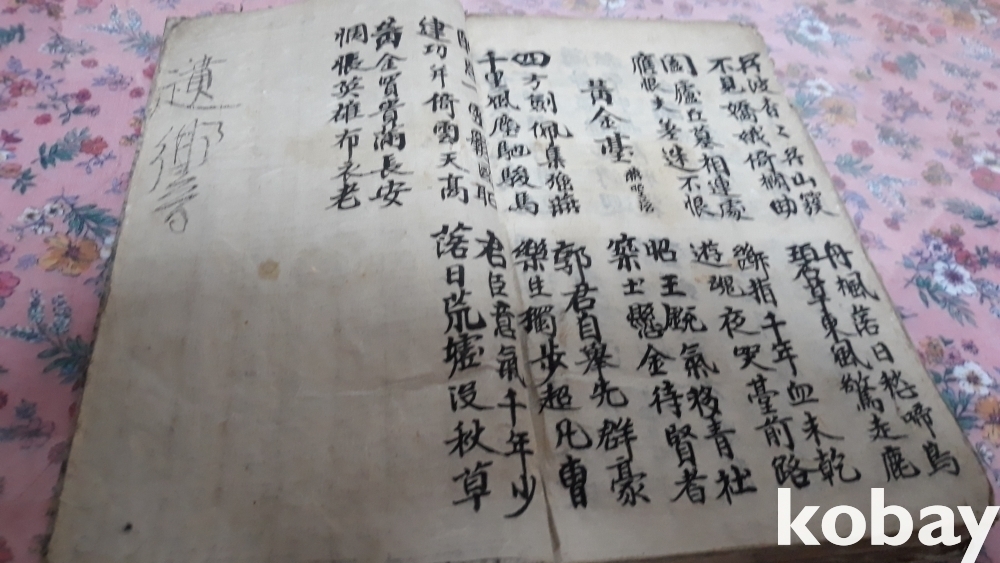 杳〻吳山 丹楓落日愁啼鳥
不見嬌娥倚 碧草東風驚走鹿
闔廬丘墓相連處 斷指千年血未乾
應恨夫差迷不恨 遊魂夜哭臺前路
黃金臺 昭王氣移青社
四方劍佩集強燕 築土懸金待賢者
千里風塵馳駿馬 郭君自擧先群豪
一 報國恥 樂生獨步超凡曹
建功年倚雲天高 君臣意氣千年少
黃金買 滿長安 落日荒墟沒秋草
惆悵英雄布衣老
kobay